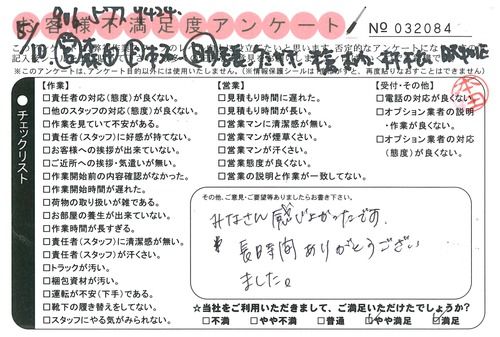 お客様不満足度アンケート
№ 032084
※このアンケートは、アンケート目的以外には使用いたしません。(※情報保護シールは
チェックリスト
【作業】
□責任者の対応(態度)が良くない。
□他のスタッフの対応(態度)が良くない。
□作業を見ていて不安がある。
□責任者(スタッフ)に好感が持てない。
□お客様への挨拶が出来ていない。
□ご近所への挨拶・気遣いが無い。
□作業開始前の内容確認がなかった。
□作業開始時間が遅れた。
□荷物の取り扱いが雑である。
□お部屋の養生が出来ていない。
□作業時間が長すぎる。
□責任者(スタッフ)に清潔感が無い。
□責任者(スタッフ)が汗くさい。
□トラックが汚い。
□梱包資材が汚い。
□運転が不安(下手)である。
□靴下の履き替えをしてない。
□スタッフにやる気がみられない。
【営業】
□見積もり時間に遅れた。
□見積もり時間が長い。
□営業マンに清潔感が無い。
□営業マンが煙草くさい。
□営業マンが汗くさい。
□営業態度が良くない。
□営業の説明と作業が一致してない。
【受付・その他】
□電話の対応が良くない
□オプション業者の説明
・作業が良くない。
□オプション業者の対応
(態度)が良くない。
その他、ご意見・ご要望等ありましたらお書き下さい。
みなさん感じよかったです。
長時間ありがとうござい
ました。
☆当社をご利用いただきまして、ご満足いただけたでしょうか?
□不満 □やや不満 □普通 □やや満足 □満足